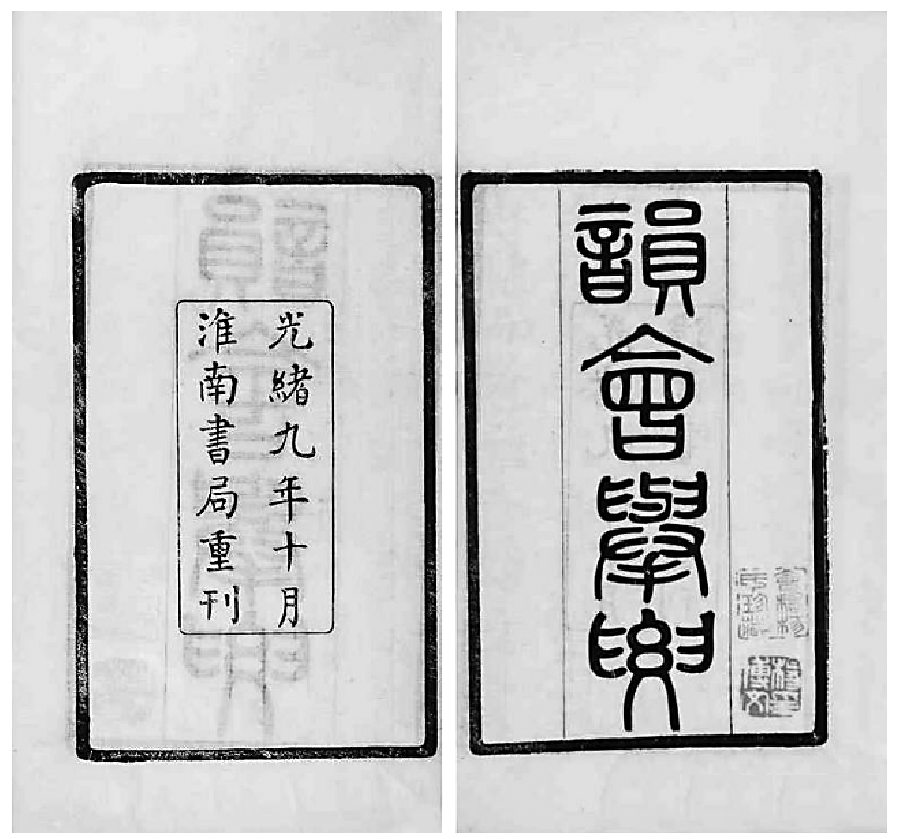 韻會舉要
光緒九年十月
淮南書局重刊